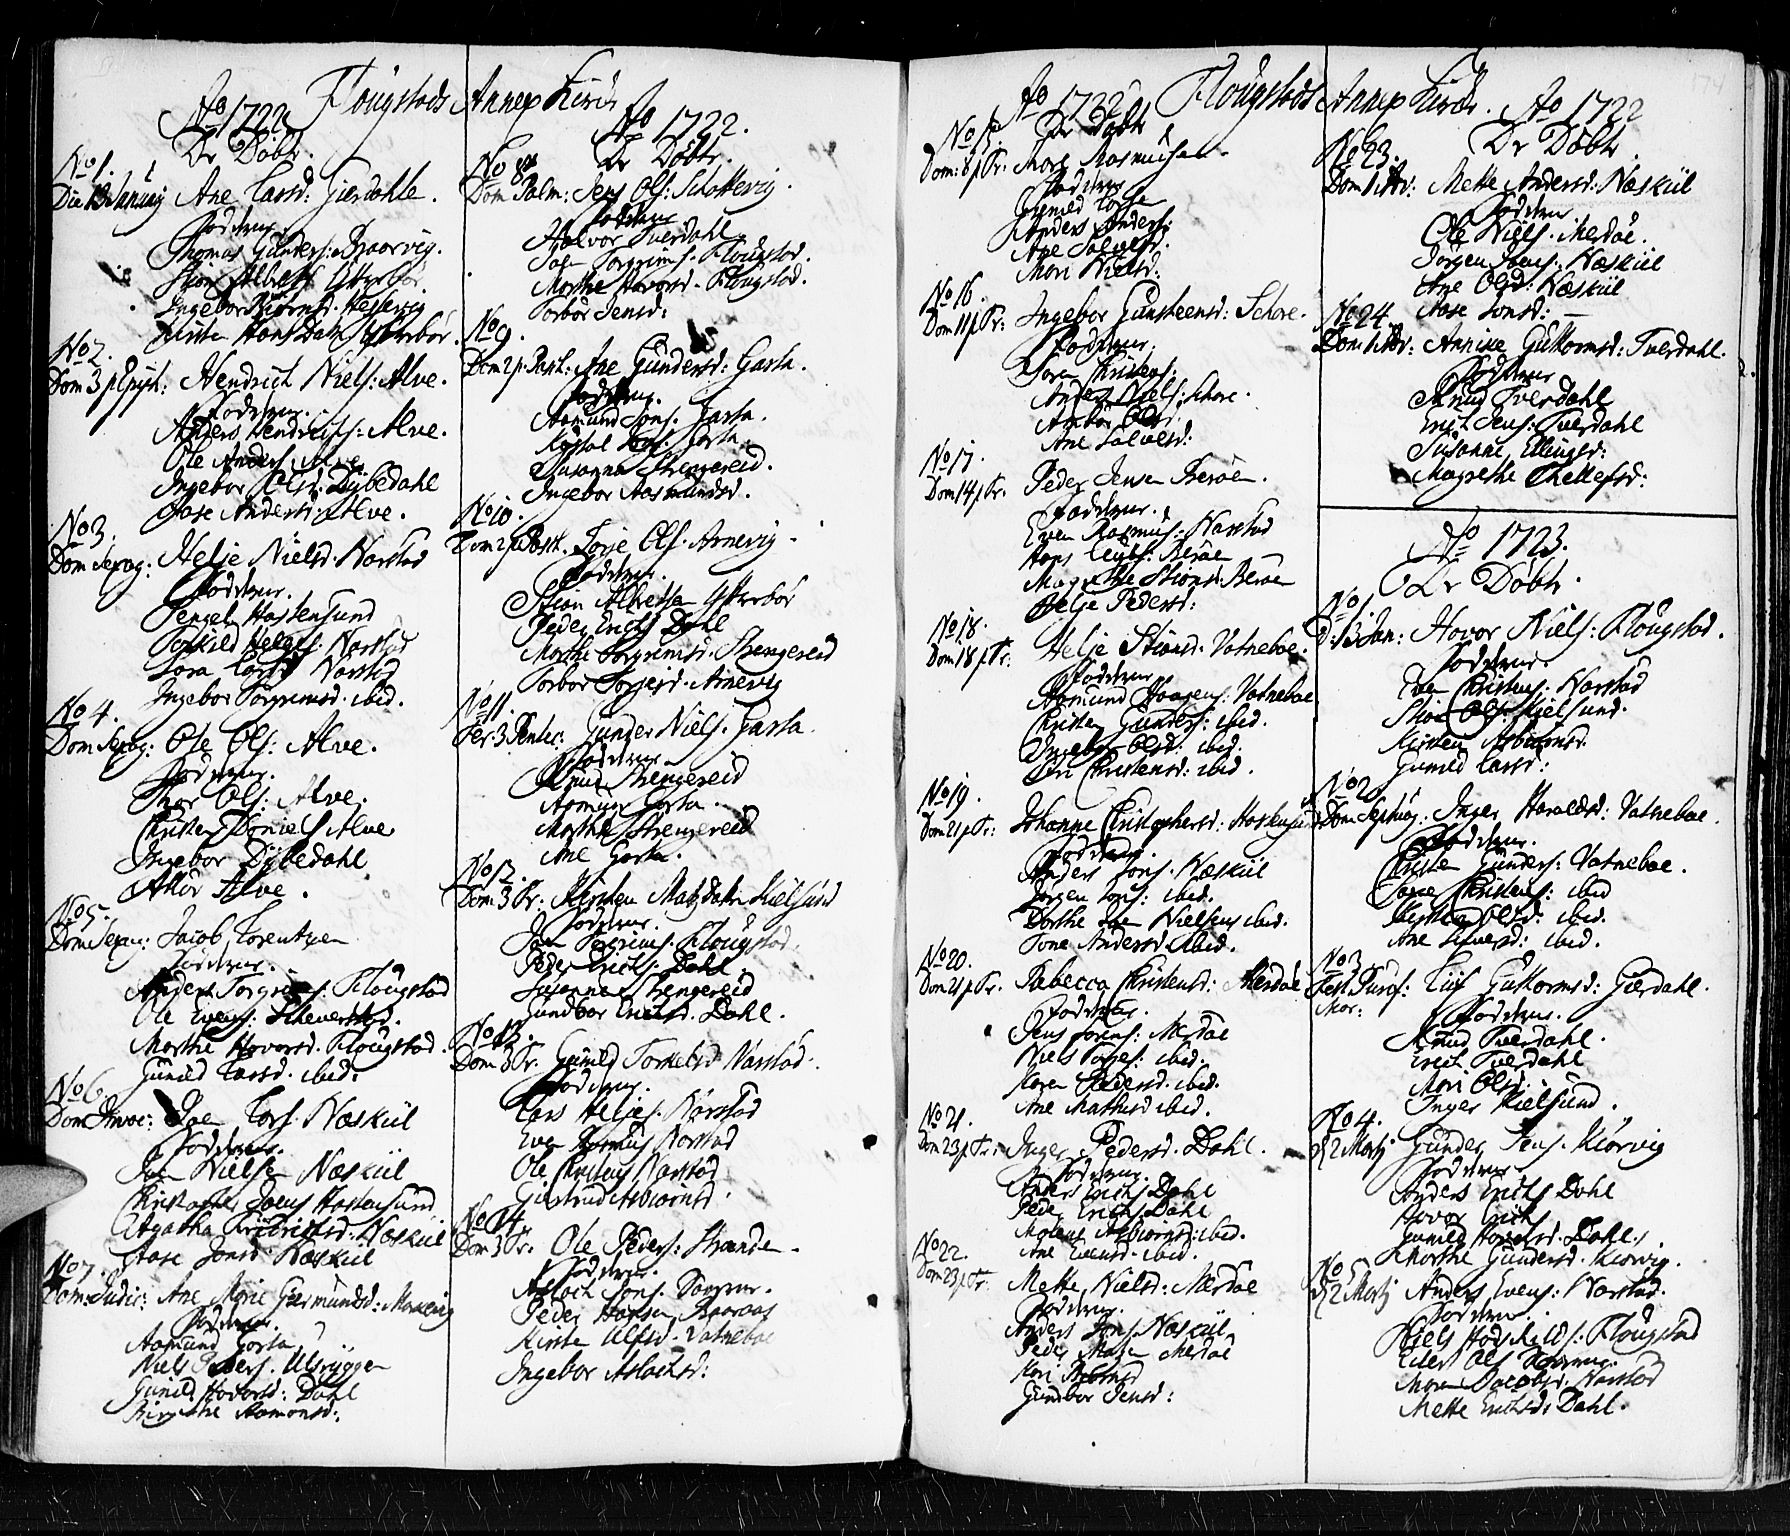 Flougstads Annex Kirke
Ao 1722
De Döbte.
No 1.
Die 13 January Ane Larsd: Gierdahle.
Fodderne.
Thomas Gunders: Braarvig.
Stian Alberts Ytterbör
Ingebor Biörnsd: Hessevig
Kirsten Hans Datr Ytterbör.
No 2.
Dom 3 p Epiph: Hendrich Niels: Alve.
Fodderne.
Anders Hendrichs: Alve.
Ole Anders. Alve
Ingebor Olsd: Dybedahl
Aase Andersd: Alve.
No 3.
Dom Sexag: Helje Nielsd. Narstad
Fodderne.
Tengel Hastensund
Torkild Heljes: Narstad
Sara Larsd Narstad
Ingebor Torgrimsd. ibid.
No 4.
Dom Sexag: Ole Ols: Alve.
Fodderne.
Thor Ols: Alve.
Christen Daniels Alve
Ingebor Dybedahl
Alve.
No 5.
Dom Sexag: Jacob Lorentzen
Fodderne.
Anders Torgrims: Flougstad
Ole Evens:
Marthe Hovorsd. Flougstad.
Gunild Larsd. ibid:
No 6.
Dom Invoc: Lars. Næskiil
Fodderne.
Jan Nielsen Næskiil
Christopher Joens Hastensund
Agatha Fridrichsd: Næskiil
Aase Jonsd. Næskiil
No 7.
Dom: Judic: Ane Marie Germundsd:
Fodderne.
Aamund Garta
Niels Peders. Ulsrygger
Gunild Hovorsd: Dahl
Birgithe Aamonsd:
Ao 1722.
De Döbte.
No 8
Dom Palm: Jens Ols: Skottevig.
Fodderne
Halvor Tverdahl.
Torgrims. Flougstad.
Marthe Hovorsd. Flougstad.
Torbor Jensd:
No 9.
Dom 2 p. Pasch: Ane Gundersd: Garta.
Fodderne.
Aamund Jons. Garta.
Garta.
Susanna Strengereid.
Ingebor Aasmundsd.
No 10.
Dom 2 p Pasch. Torje Ols. Arnevig.
Fodderne.
Stian Albretsen Ytterbör
Peder Erichs Dahl
Marthe Torgrimsd. Strengereid
Torbor Torjesd. Arnevig
No 11.
Fer: 3 Pentec: Gunder Niels. Garta.
Fodderne.
Knud Strengereid
Aamund Garta.
Marthe Strengereid
Ane Garta.
No 12.
Dom 3 Tr: Kirsten Matz Datr Kielsund
Fodderne.
Jan Torgrims. Flougstad.
Peder Erichs. Dahl.
Susanna Strengereid
Gundbor Erichsd. Dahl.
No 13.
Dom 3 Tr. Gunild Torkelsd Narstad.
Fodderne.
Lars Heljes. Narstad
Even Rasmus Narstad
Ole Christens Narstad
Giertrud Asbiornsd.
No 14.
Dom 3 Tr: Ole Peders: Strande.
Fodderne.
Asloch Jons.
Peder Hansen
Kirsten Ulfsd. Vatneboe
Ingebor Aslochsd:
Flougstads Annex Kirke.
Ao 1722
De Döbte
No 15.
Dom: 8 p Tr: Rasmusen.
Fodderne
Gunild
Anders Anders:
Ane Salvesd.
Mari Nielsd:
No 16.
Dom 11 p Tr: Ingebor Gunsteensd: Schore.
Fodderne.
Soren Christens:
Anders Niels: Schore.
Anbor Olsd:
Ane Salvesd:
No 17.
Dom 14 p Tr. Peder Jensen Beröe.
Fodderne.
Even Rasmus: Narstad
Hans Beröe
Magrethe Stiansd. Beröe
Helje Pedersd:
No 18.
Dom 18 p Tr: Helje Stiansd. Vatneboe.
Fodderne
Aamund Haagens: Vatneboe
Christen Gunders: ibid.
Ingebor Olsd: ibid.
Siri Christensd: ibid.
No 19.
Dom 21 p Tr: Johanne Christophersd: Hastensund
Fodderne.
Anders Jons. Næskiil
Jörgen Jons: ibid.
Dorthe Nielsens ibid.
Tone Andersd. ibid.
No 20.
Dom 21 p Tr. Rebecca Christensd: Merdøe
Fodderne.
Jens Sörens: Merdøe
Niels Torjes: ibid.
Karen Pedersd. ibid.
Ane Mathisd ibid.
No 21.
Dom 23 p Tr: Inger Pedersd. Dahl.
Fodderne.
Anders Erichs Dahl
Peder Erichs Dahl
Malene Asbiörnsd: ibid.
Ane Evensd. ibid.
No 22.
Dom 23 p Tr: Mette Nielsd: Merdøe
Fodderne.
Anders Jons. Næskiil
Peder Merdøe
Kari
Gundbor Jensd:
Ao 1722
De Döbte
No 23.
Dom 1. Adv: Mette Andersd: Næskiil
Fodderne.
Ole Niels. Merdøe.
Jorgen Jens: Næskiil
Ane Olsd: Næskiil
Aase Jonsd:
No 24.
Dom 1. Adv: Annine Guttormsd: Tverdahl.
Fodderne
Knud Tverdahl
Erich Jens: Tverdahl
Susanne Ellingsd:
Magrethe Thellefsd:
Ao 1723.
De Döbte.
No 1.
D: 13 Jan: Hovor Niels: Flougstad.
Fodderne.
Even Christens: Narstad
Stian Ols: Kielsund.
Kirsten Asbiornsd.
Gunild Larsd:
No 2
Dom Septuag: Inger Haraldsd: Vatneboe.
Fodderne.
Christen Gunders: Vatneboe.
Christens: ibid
Olsd: ibid.
Ane Siversd: ibid.
No 3
Fest. Purif: Mar: Guttormsd: Gierdahl.
Fodderne.
Knud Tverdahl.
Erich Tverdahl
Mari Olsd.
Inger Kielsund.
No 4.
d 2 Martj Gunder Jens. Kiörvig
Fodderne.
Anders Erichs Dahl
Hovor Erichs
Gunild Hovorsd. Dahl.
Marthe Gundersd. Kiorvig.
No 5
d 2 Martj Anders Evens: Narstad.
Fodderne.
Niels Hoskilds: Flougstad
Eilert Ols
Maren Jacobsd. Narstad
Mette Erichsd: Dahl.